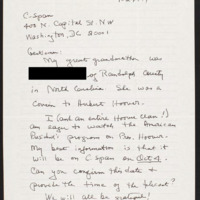 C-Span
400 N. Capitol St. N.W
Washington, DC 20001
Gentlemen:
My great grandmother was
of Randolph County
in North Carolina. She was a
Cousin to Herbert Hoover.
I (and an entire Hoover clan!)
am eager to watch the American
President program on Pres. Hoover.
My best information is that it
will be on C-Span on Oct 4.
Can you confirm this date &
provide the time of the telecast?
We will all be grateful!